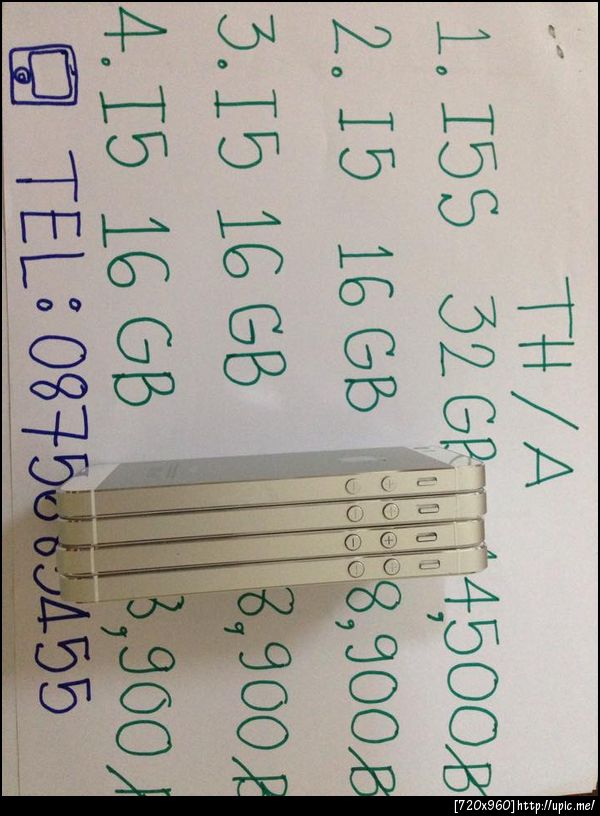 TH/A
1. I5S 32 GB 14,500฿
2. I5 16 GB 8,900฿
3. I5 16 GB 8,900฿
4. I5 16 GB
TEL:
[720x960]http://upic.me/